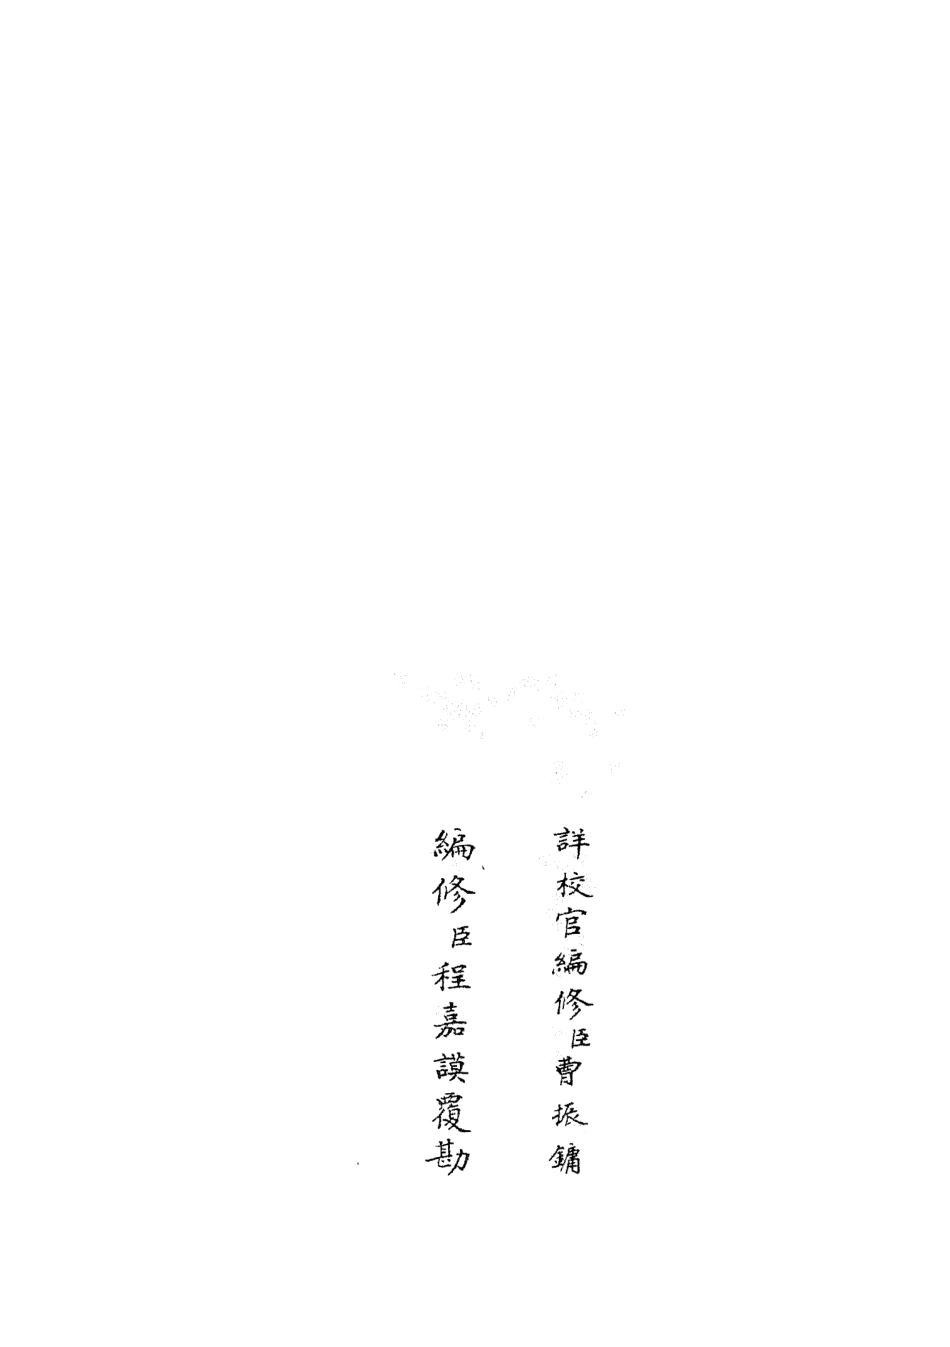 詳校官編修臣曹振鏞
編修臣程嘉謨覆勘